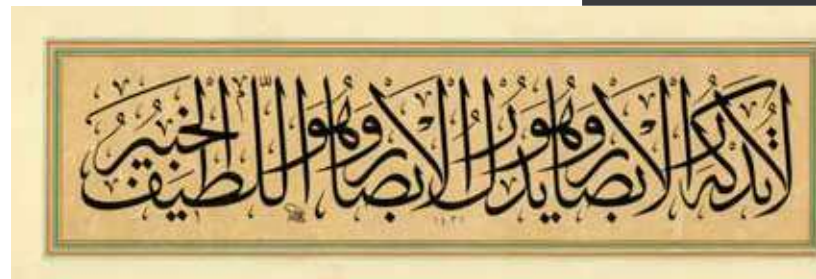 لَا تُدْرِكُهُ الْأَبْصَارُ وَهُوَ يُدْرِكُ الْأَبْصَارَ وَهُوَ اللَّطِيفُ الْخَبِيرُ